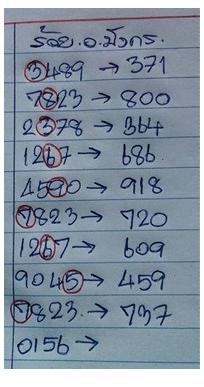 ร้อย.อ.มังกร.
3489 → 371
7823 → 800
2378 → 364
1267 → 686
4590 → 918
7823 → 720
1267 → 609
9045 → 459
7823 → 737
0156 →